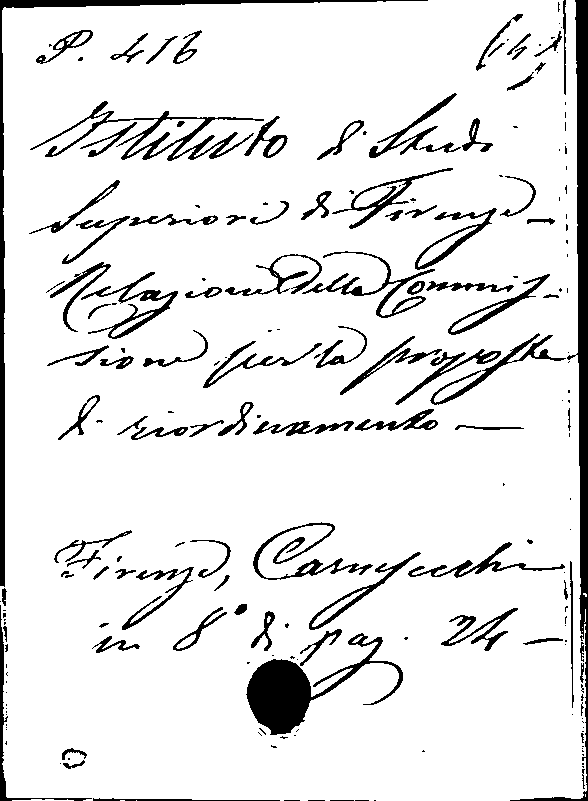 P. 416 (14)
Istituto di Studi
Superiori di Firenze —
Relazione della Commis-
sione per la proposta
di riordinamento —
Firenze, Carnesecchi
in 8° di pag. 24 —